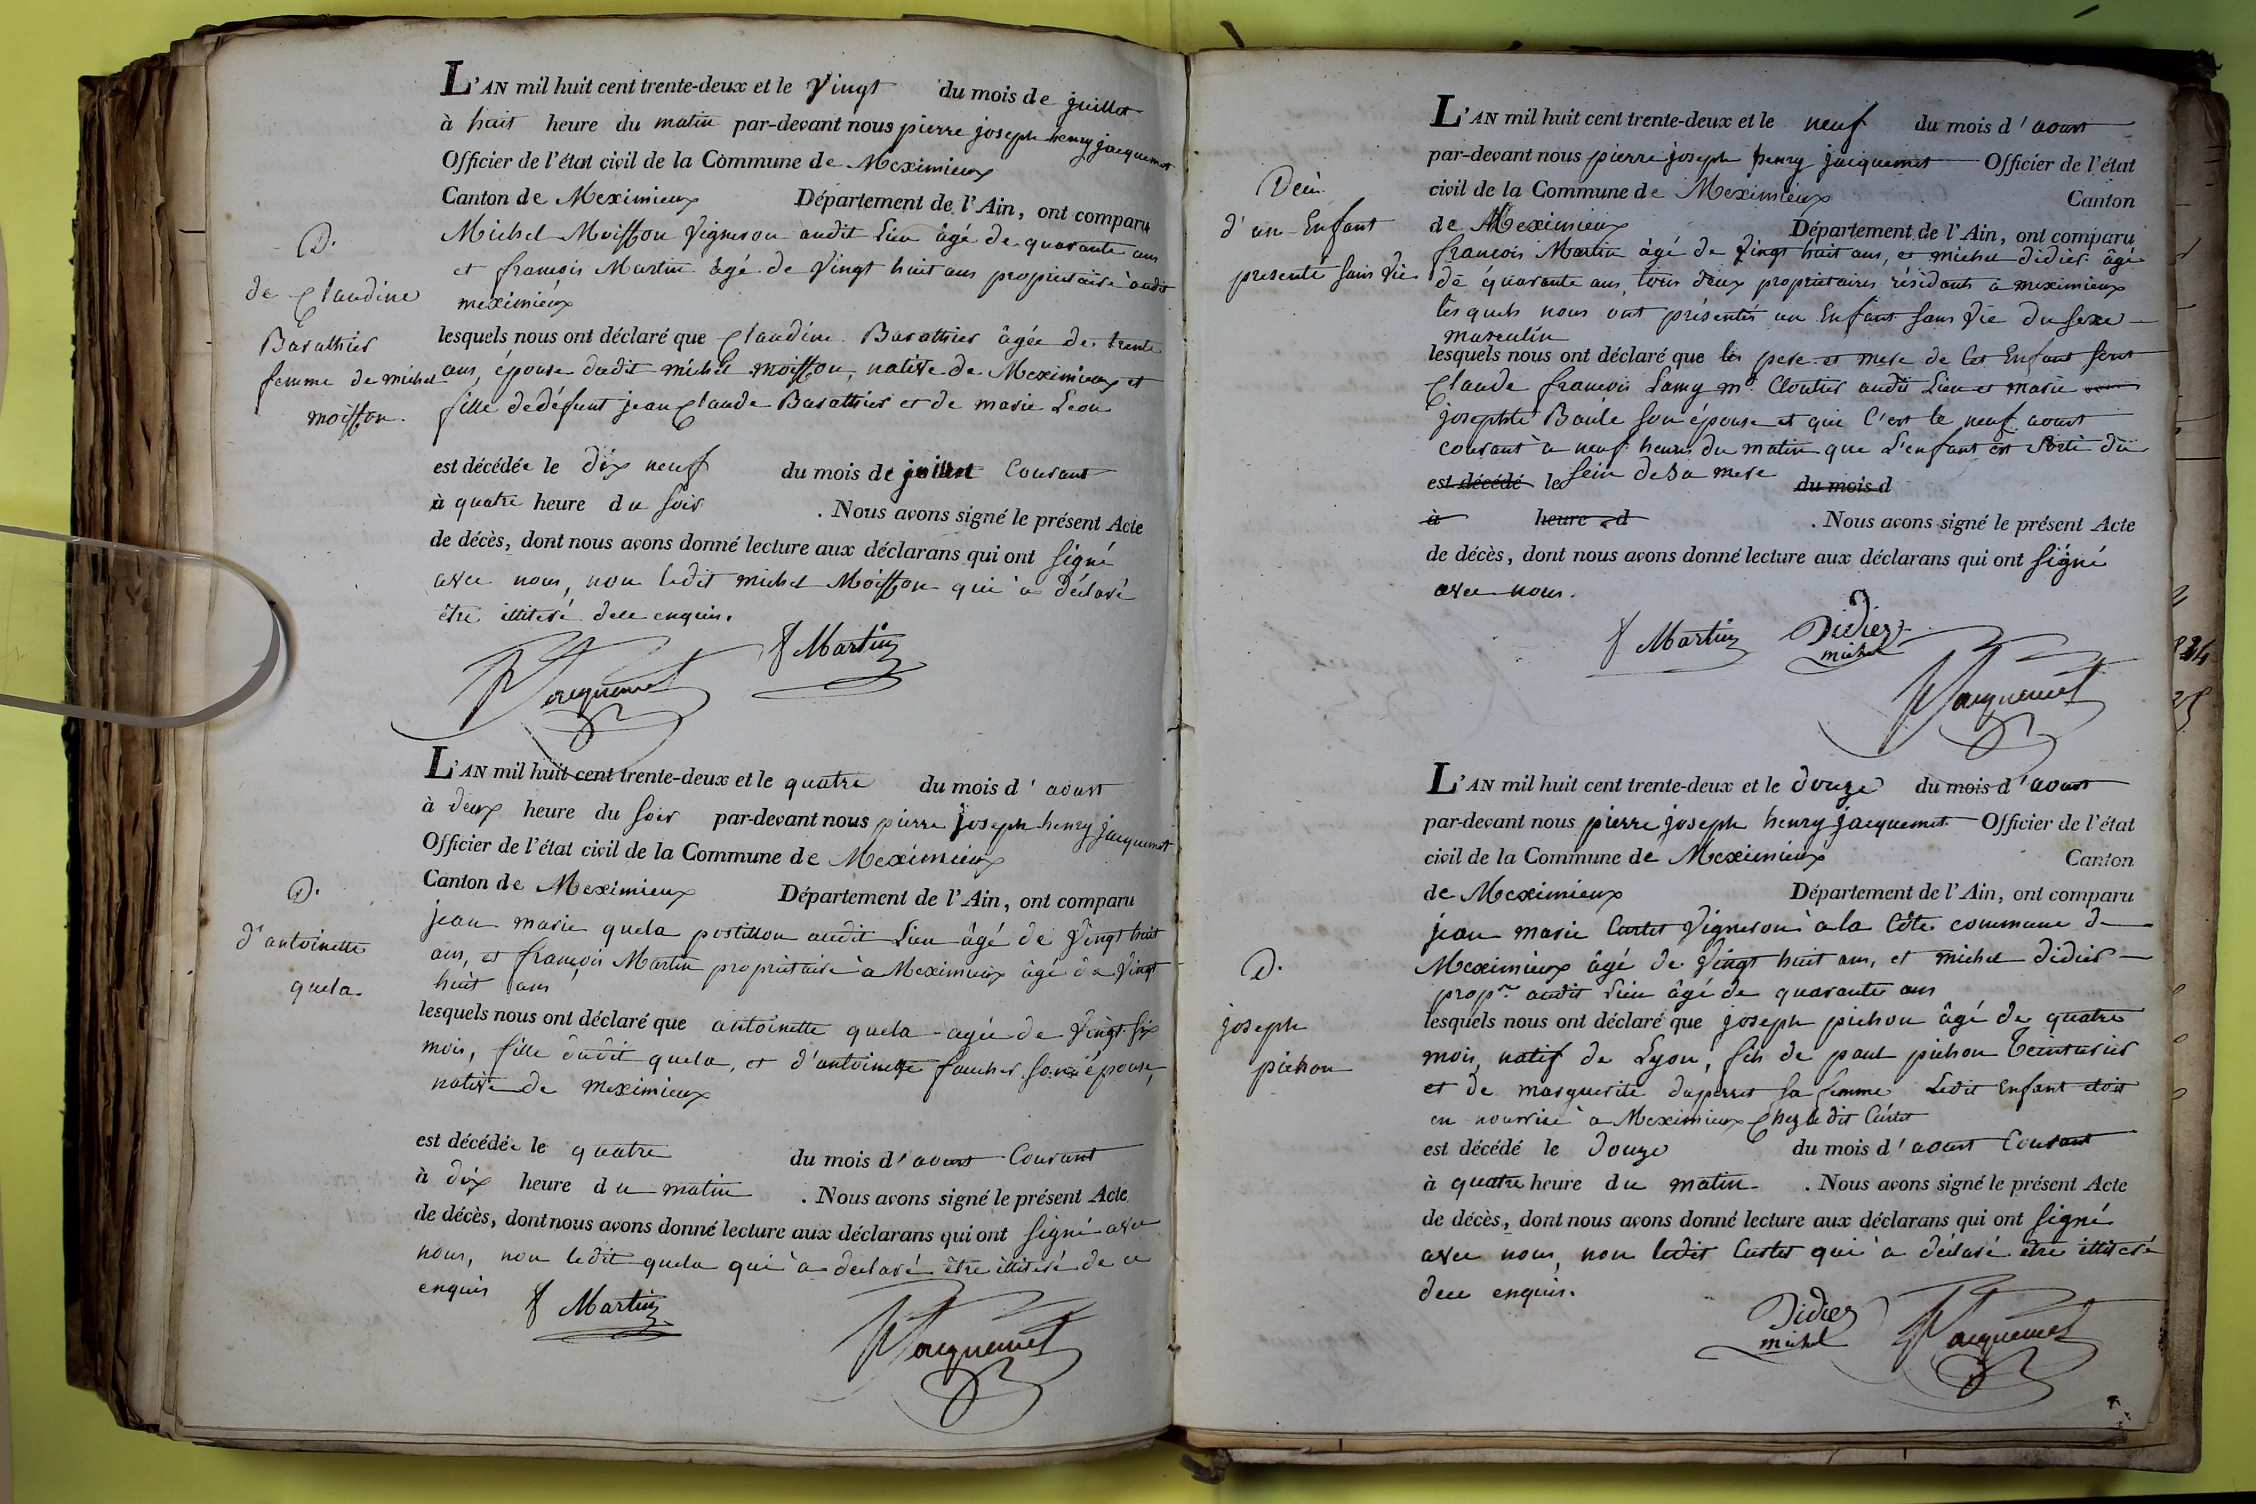 L'AN mil huit cent trente-deux et le Vingt du mois de juillet
à huit heure du matin par-devant nous pierre joseph henry jacquemet
Officier de l'état civil de la Commune de Meximieux
Canton de Meximieux Département de l'Ain, ont comparu
Michel Moisson Vigneron audit Lieu âgé de quarante ans
et francois Martin âgé de Vingt huit ans proprietaire audit
meximieux
D.
de Claudine
Barathier
femme de michel
moisson.
lesquels nous ont déclaré que Claudine Barathier âgée de trente
ans, épouse dudit michel moisson, native de Meximieux et
fille de défunt jean Claude Barathier et de marie Leon
est décédée le dix neuf du mois de juillet Courant
à quatre heure du soir . Nous avons signé le présent Acte
de décès, dont nous avons donné lecture aux déclarans qui ont signé
avec nous, non ledit michel Moisson qui a déclaré
être illiteré dece enquis.
Jacquemet f Martin
L'AN mil huit cent trente-deux et le quatre du mois d'aoust
à deux heure du soir par-devant nous pierre joseph henry jacquemet
Officier de l'état civil de la Commune de Meximieux
Canton de Meximieux Département de l'Ain, ont comparu
jean marie quela postillon audit Lieu âgé de Vingt huit
ans, et françois Martin proprietaire à Meximieux âgé de Vingt
huit ans
D.
d'antoinette
quela.
lesquels nous ont déclaré que antoinette quela agée de Vingt six
mois, fille dudit quela, et d'antoinette faucher son épouse,
native de meximieux
est décédée le quatre du mois d'aoust Courant
à dix heure du matin . Nous avons signé le présent Acte
de décès, dont nous avons donné lecture aux déclarans qui ont signé avec
nous, non ledit quela qui a declaré être illiteré de ce
enquis
f Martin Jacquemet
L'AN mil huit cent trente-deux et le neuf du mois d'aoust
par-devant nous pierre joseph henry jacquemet Officier de l'état
civil de la Commune de Meximieux Canton
de Meximieux Département de l'Ain, ont comparu
francois Martin âgé de Vingt huit ans, et michel didier âgé
de quarante ans, tous deux proprietaires résidants à meximieux
lesquels nous ont présentés un Enfant sans Vie du sexe
masculin
d'un Enfant
presenté sans Vie
lesquels nous ont déclaré que les pere et mere de Cet Enfant sont
Claude francois Lamy md. Cloutier audit Lieu et marie
josephte Baule son épouse et que C'est le neuf aoust
courant à neuf heure du matin que L'enfant est sorti du
est décédé le sein de sa mere du mois d
à heure d . Nous avons signé le présent Acte
de décès, dont nous avons donné lecture aux déclarans qui ont signé
avec nous.
f Martin Didier
michel
Jacquemet
L'AN mil huit cent trente-deux et le douze du mois d'aoust
par-devant nous pierre joseph henry jacquemet Officier de l'état
civil de la Commune de Meximieux Canton
de Meximieux Département de l'Ain, ont comparu
jean marie Cartet Vigneron à la Côte commune de
Meximieux âgé de Vingt huit ans, et michel didier
propre audit Lieu âgé de quarante ans
D.
joseph
pichon
lesquels nous ont déclaré que joseph pichon âgé de quatre
mois, natif de Lyon, fils de paul pichon teinturier
et de marguerite duperret sa femme Ledit Enfant etoit
en nourrice à Meximieux Chez le dit Cartet
est décédé le douze du mois d'aoust Courant
à quatre heure du matin . Nous avons signé le présent Acte
de décès, dont nous avons donné lecture aux déclarans qui ont signé
avec nous, non ledit Cartet qui a déclaré être illiteré
dece enquis.
Didier
michel
Jacquemet